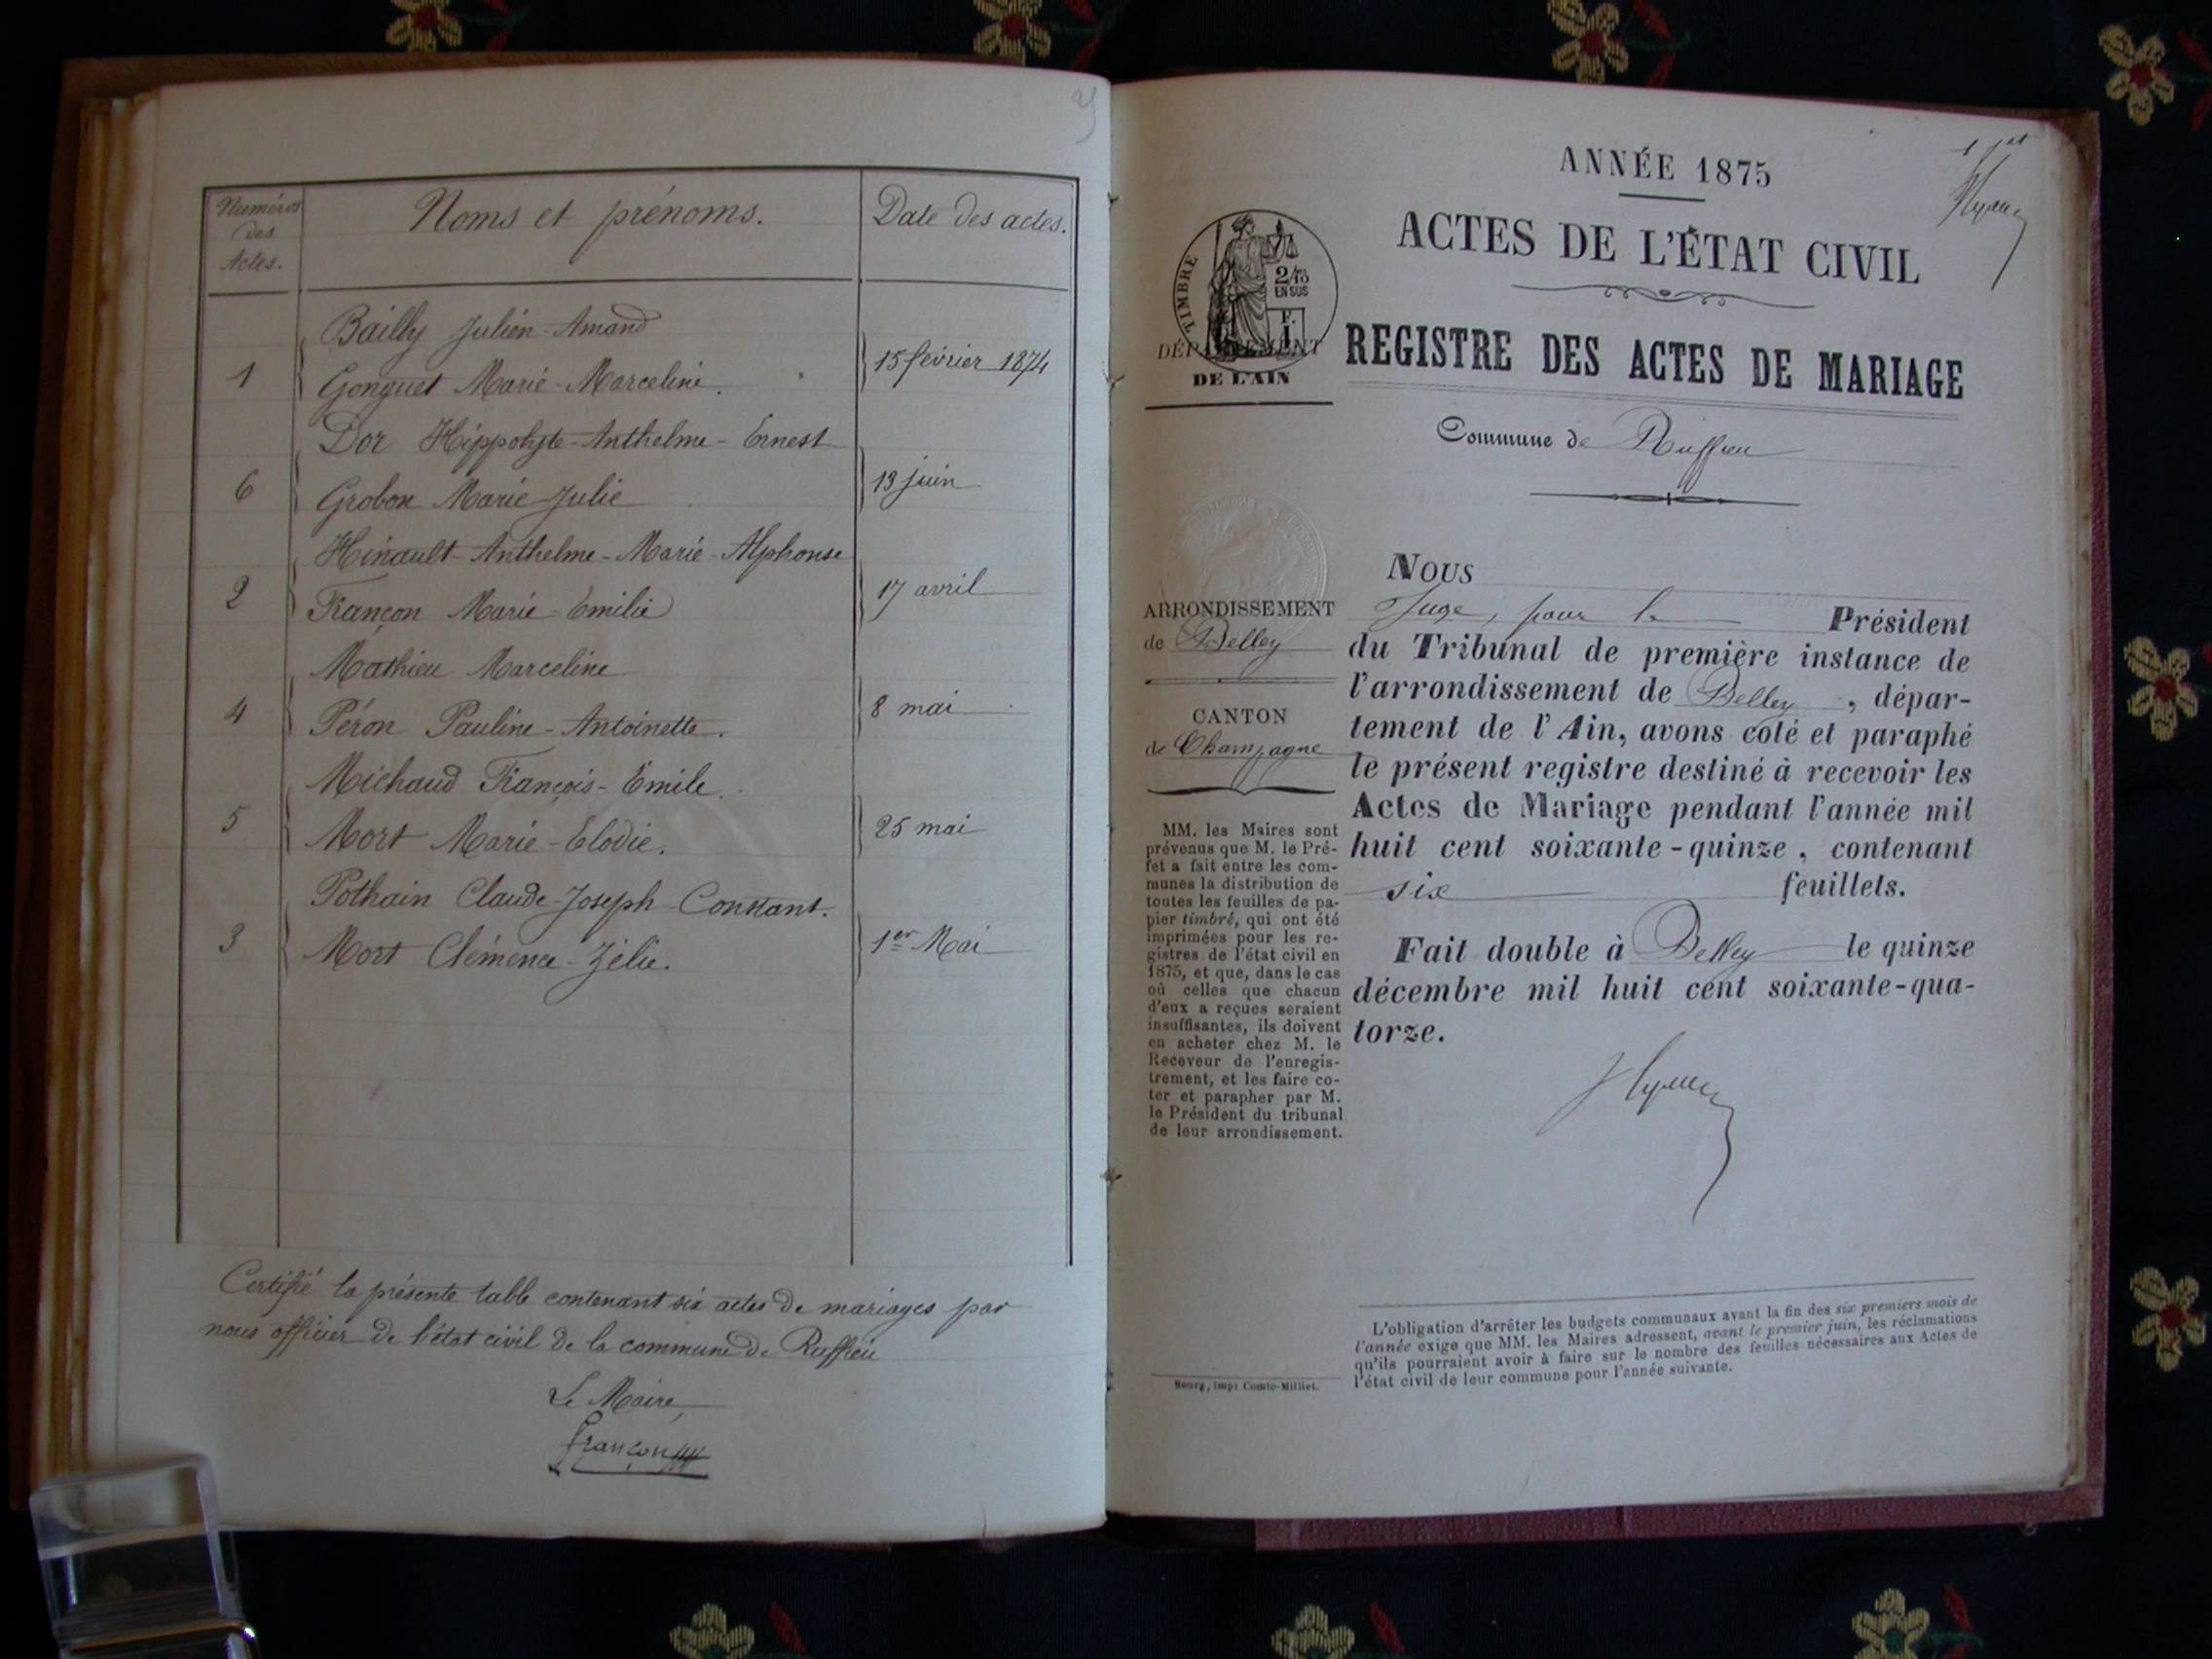 Numéros
des
Actes.
Noms et prénoms.
Date des actes.
Bailly Julien-Amand
1
Gonguet Marie-Marceline.
15 février 1874
Dor Hippolyte-Anthelme-Ernest
6
Grobon Marie-Julie
13 juin
Hinault Anthelme-Marie-Alphonse
2
Françon Marie-Emilie
17 avril
Mathieu Marceline
4
Péron Pauline-Antoinette.
8 mai
Michaud François-Emile.
5
Mort Marie-Elodie.
25 mai
Pothain Claude-Joseph-Constant.
3
Mort Clémence-Zélie.
1er Mai
Certifié la présente table contenant six actes de mariages par
nous officier de l'état civil de la commune de Ruffieu
Le Maire,
françon
ANNÉE 1875
ACTES DE L'ÉTAT CIVIL
TIMBRE
2/10
EN SUS
F.
1
DÉPARTEMENT
DE L'AIN
REGISTRE DES ACTES DE MARIAGE
Commune de Ruffieu
ARRONDISSEMENT
de Belley
CANTON
de Champagne
MM. les Maires sont
prévenus que M. le Pré-
fet a fait entre les com-
munes la distribution de
toutes les feuilles de pa-
pier timbré, qui ont été
imprimées pour les re-
gistres de l'état civil en
1875, et que, dans le cas
où celles que chacun
d'eux a reçues seraient
insuffisantes, ils doivent
en acheter chez M. le
Receveur de l'enregis-
trement, et les faire co-
ter et parapher par M.
le Président du tribunal
de leur arrondissement.
Bourg, impr. Comte-Milliet.
Nous
Juge, pour le Président
du Tribunal de première instance de
l'arrondissement de Belley, dépar-
tement de l'Ain, avons coté et paraphé
le présent registre destiné à recevoir les
Actes de Mariage pendant l'année mil
huit cent soixante-quinze, contenant
six feuillets.
Fait double à Belley le quinze
décembre mil huit cent soixante-qua-
torze.
L'obligation d'arrêter les budgets communaux avant la fin des six premiers mois de
l'année exige que MM. les Maires adressent, avant le premier juin, les réclamations
qu'ils pourraient avoir à faire sur le nombre des feuilles nécessaires aux Actes de
l'état civil de leur commune pour l'année suivante.